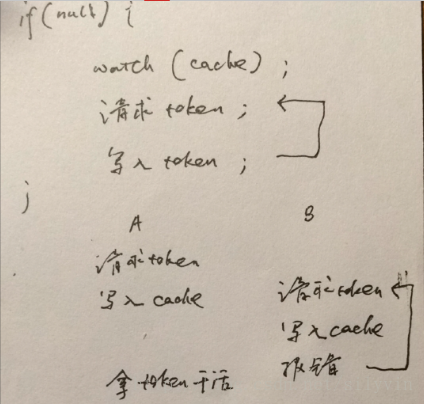 if(null) {
watch (cache) ;
请求 token ;
写入 token ;
}
A
B
请求token
写入 cache
请求token
写入cache
报错
拿 token 干活